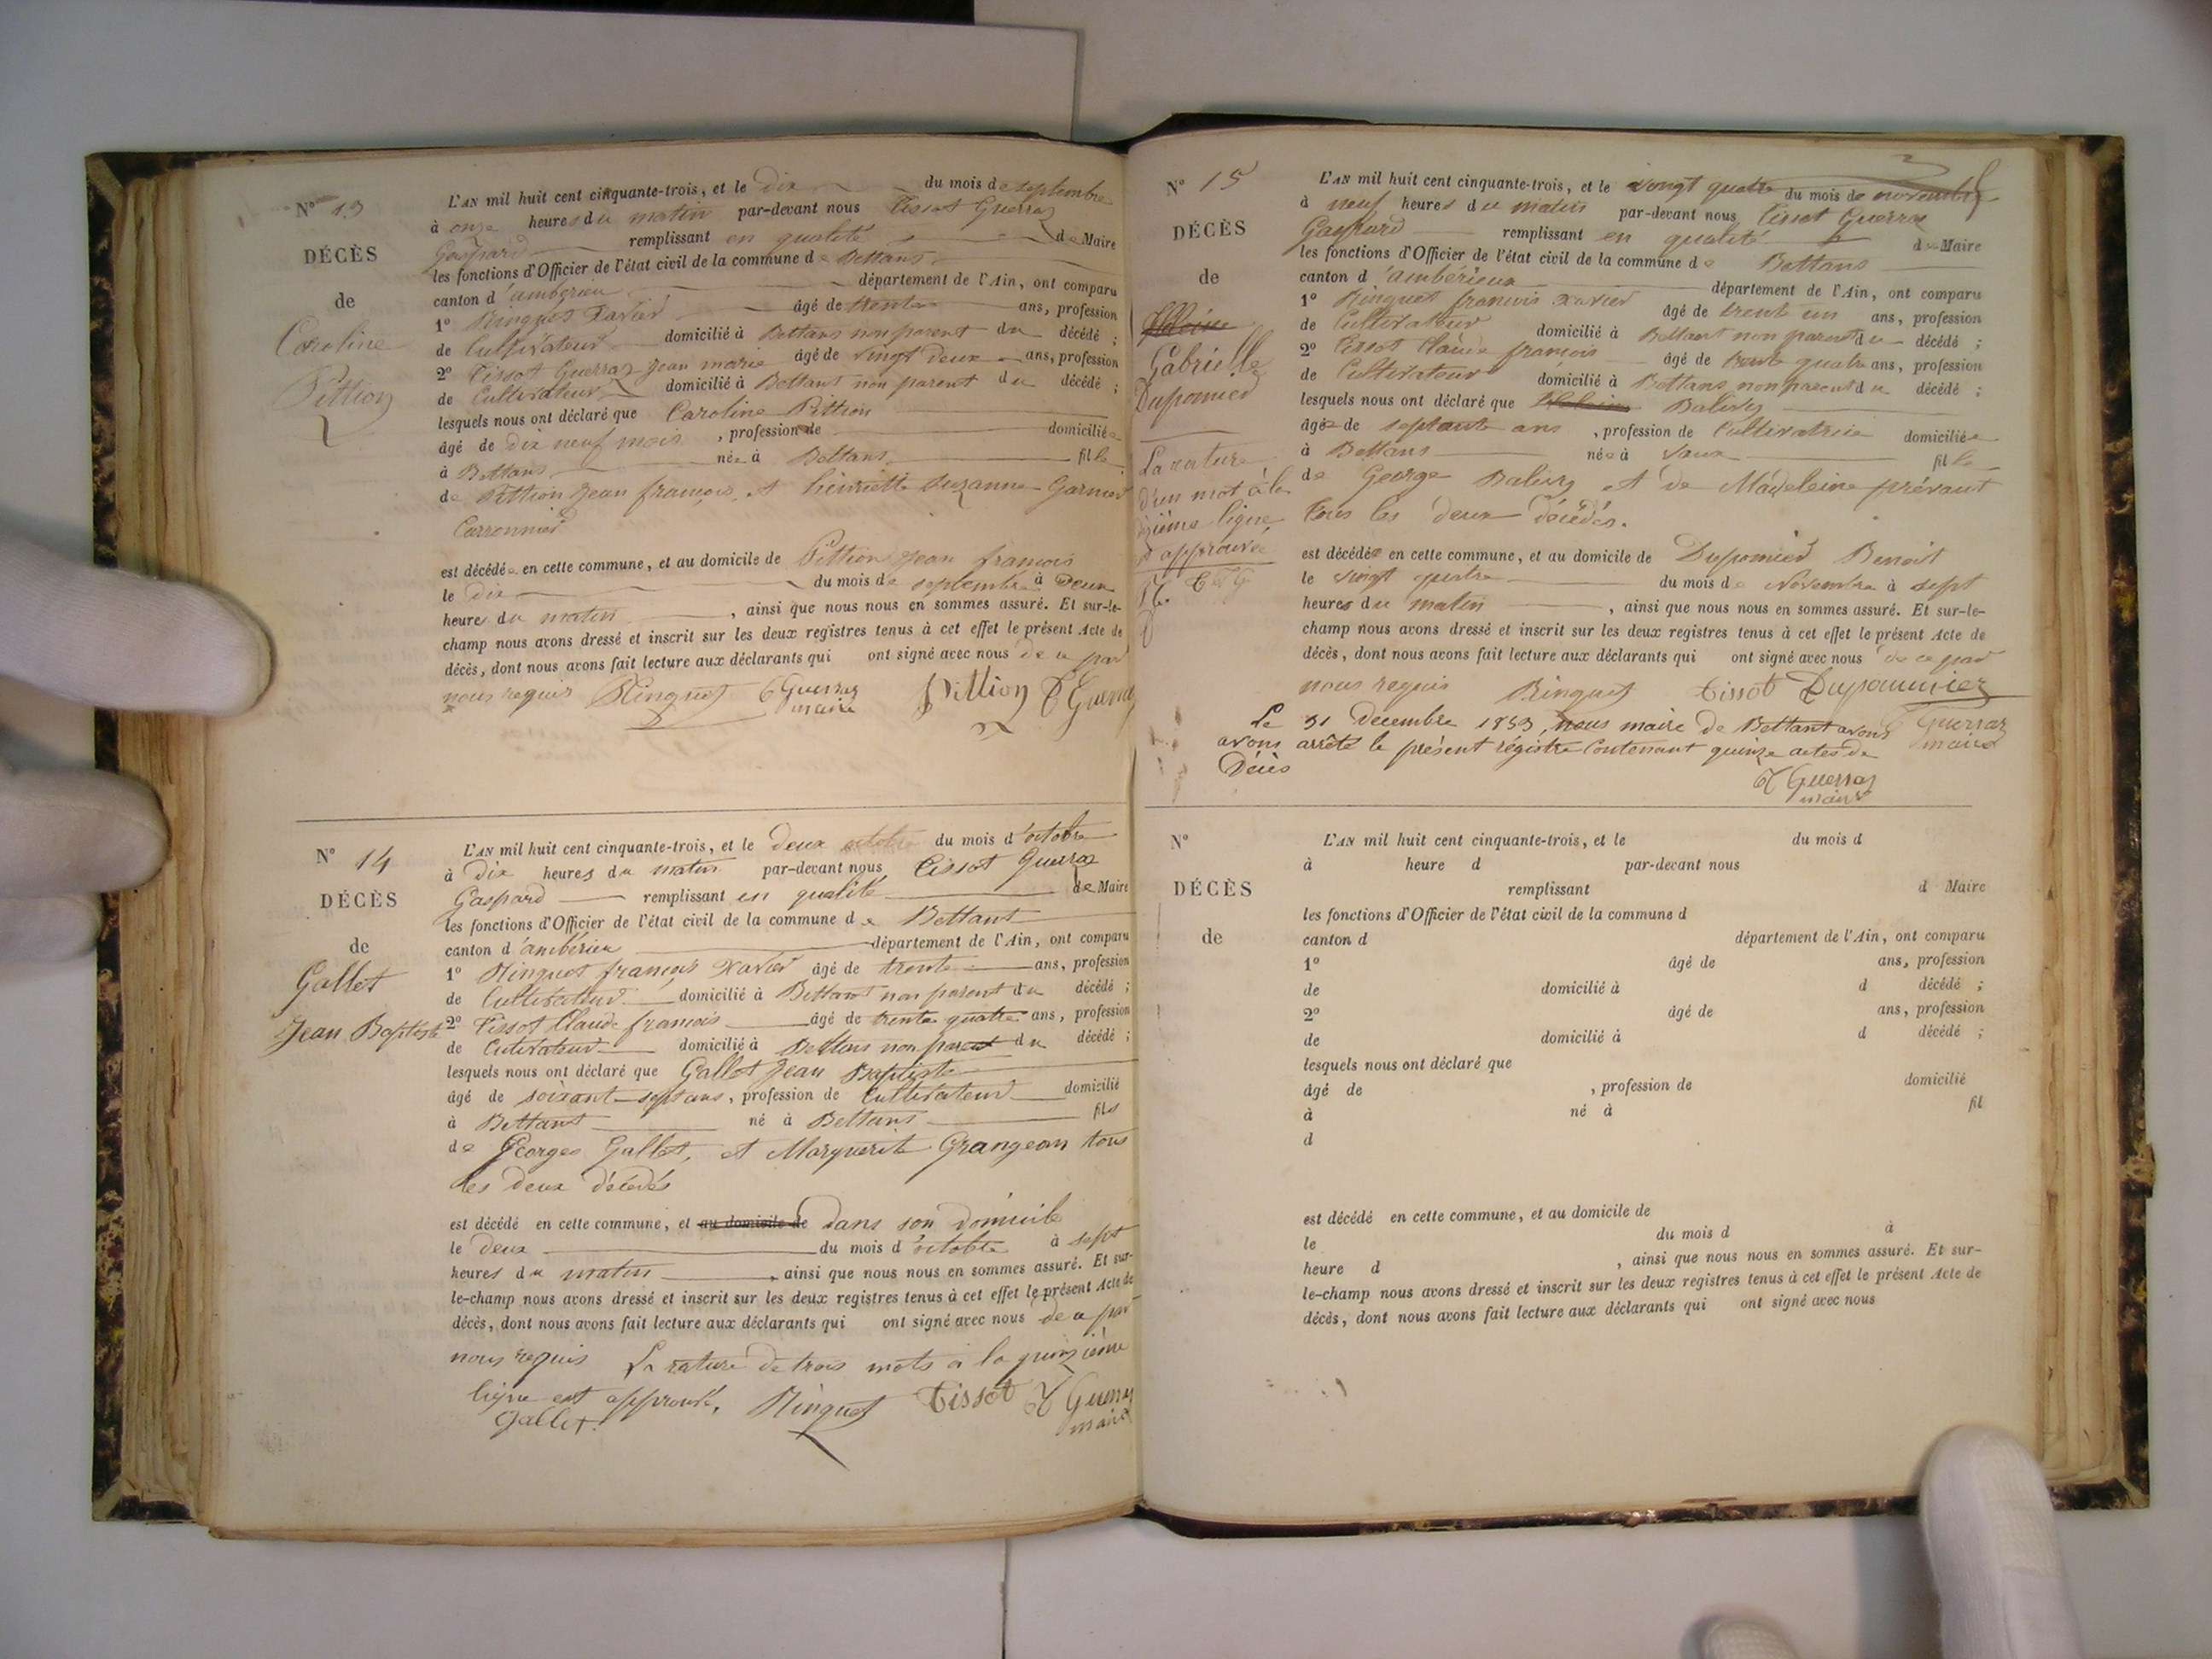 N° 13
DÉCÈS
de
Caroline
Pittion
L'AN mil huit cent cinquante-trois, et le dix du mois de septembre
à onze heures du matin par-devant nous Tissot Guerraz
Gaspard remplissant en qualité de Maire
les fonctions d'Officier de l'état civil de la commune de Bettans
canton d'ambérieu département de l'Ain, ont comparu
1° Ringuet Xavier âgé de trente ans, profession
de Cultivateur domicilié à Bettans non parent du décédé ;
2° Tissot Guerraz jean marie âgé de vingt deux ans, profession
de Cultivateur domicilié à Bettant non parent du décédé ;
lesquels nous ont déclaré que Caroline Pittion
âgé de dix neuf mois , profession de domiciliée
à Bettans née à Bettans fille
de Pittion Jean françois, et henriette Suzanne Garnier
Carronnier
est décédée en cette commune, et au domicile de Pittion Jean francois
le dix du mois de septembre à Deux
heures du matin , ainsi que nous nous en sommes assuré. Et sur-le-
champ nous avons dressé et inscrit sur les deux registres tenus à cet effet le présent Acte de
décès, dont nous avons fait lecture aux déclarants qui ont signé avec nous de ce par
nous requis Ringuet T Guerraz Pittion T Guerraz
maire
N° 14
DÉCÈS
de
Gallet
Jean Baptiste
L'AN mil huit cent cinquante-trois, et le deux du mois d'octobre
à dix heures du matin par-devant nous Tissot Guerraz
Gaspard remplissant en qualité de Maire
les fonctions d'Officier de l'état civil de la commune de Bettant
canton d'ambérieu département de l'Ain, ont comparu
1° Ringuet françois Xavier âgé de trente ans, profession
de Cultivateur domicilié à Bettant non parent du décédé ;
2° Tissot Claude francois âgé de trente quatre ans, profession
de Cutivateur domicilié à Bettans non parent du décédé ;
lesquels nous ont déclaré que Gallet Jean Baptiste
âgé de soixante-sept ans, profession de Cultivateur domicilié
à Bettant né à Bettans fils
de Georges Gallet, et Marguerite Grangean tous
les deux décédés
est décédé en cette commune, et au domicile de dans son domicile
le deux du mois d'octobre à sept
heures du matin , ainsi que nous nous en sommes assuré. Et sur-
le-champ nous avons dressé et inscrit sur les deux registres tenus à cet effet le présent Acte de
décès, dont nous avons fait lecture aux déclarants qui ont signé avec nous de ce par
nous requis La rature de trois mots à la quinzième
ligne est approuvé. Ringuet Tissot T Guerraz
Gallet. maire
N° 15
DÉCÈS
de
Gabrielle
Duponnier
La rature
d'un mot à la
dixième ligne
approuvée
T G
L'AN mil huit cent cinquante-trois, et le vingt quatre du mois de novembre
à neuf heures du matin par-devant nous Tissot Guerraz
Gaspard remplissant en qualité de Maire
les fonctions d'Officier de l'état civil de la commune de Bettans
canton d'ambérieux département de l'Ain, ont comparu
1° Ringuet francois xavier âgé de trente un ans, profession
de Cultivateur domicilié à Bettant non parent du décédé ;
2° Tissot Claude françois âgé de trente quatre ans, profession
de Cultivateur domicilié à Bettans non parent du décédé ;
lesquels nous ont déclaré que Balivez
âgée de septante ans , profession de Cultivatrice domiciliée
à Bettans née à Vaux fille
de George Balivez et de Madeleine prévant
tous les deux décédés.
est décédée en cette commune, et au domicile de Duponnier Benoit
le vingt quatre du mois de Novembre à sept
heures du matin , ainsi que nous nous en sommes assuré. Et sur-le-
champ nous avons dressé et inscrit sur les deux registres tenus à cet effet le présent Acte de
décès, dont nous avons fait lecture aux déclarants qui ont signé avec nous de ce par
nous requis Ringuet Tissot Dupaunnier
Le 31 décembre 1853, nous maire de Bettant avons Guerraz
avons arrêté le présent régistre Contenant quinze actes de maire
Décès
T Guerraz
maire
N°
DÉCÈS
de
L'AN mil huit cent cinquante-trois, et le du mois d
à heure d par-devant nous
remplissant d Maire
les fonctions d'Officier de l'état civil de la commune d
canton d département de l'Ain, ont comparu
1° âgé de ans, profession
de domicilié à d décédé ;
2° âgé de ans, profession
de domicilié à d décédé ;
lesquels nous ont déclaré que
âgé de , profession de domicilié
à né à fil
d
est décédé en cette commune, et au domicile de
le du mois d à
heure d , ainsi que nous nous en sommes assuré. Et sur-
le-champ nous avons dressé et inscrit sur les deux registres tenus à cet effet le présent Acte de
décès, dont nous avons fait lecture aux déclarants qui ont signé avec nous